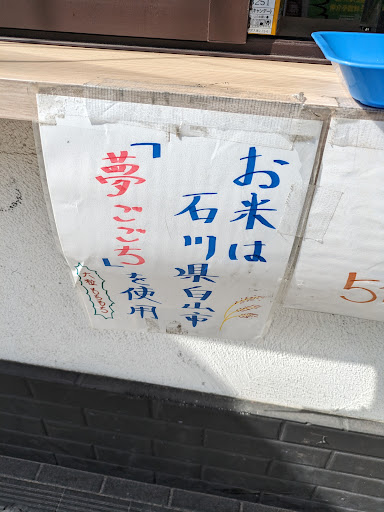 お米は
石川県白山市
「夢ごこち」を使用